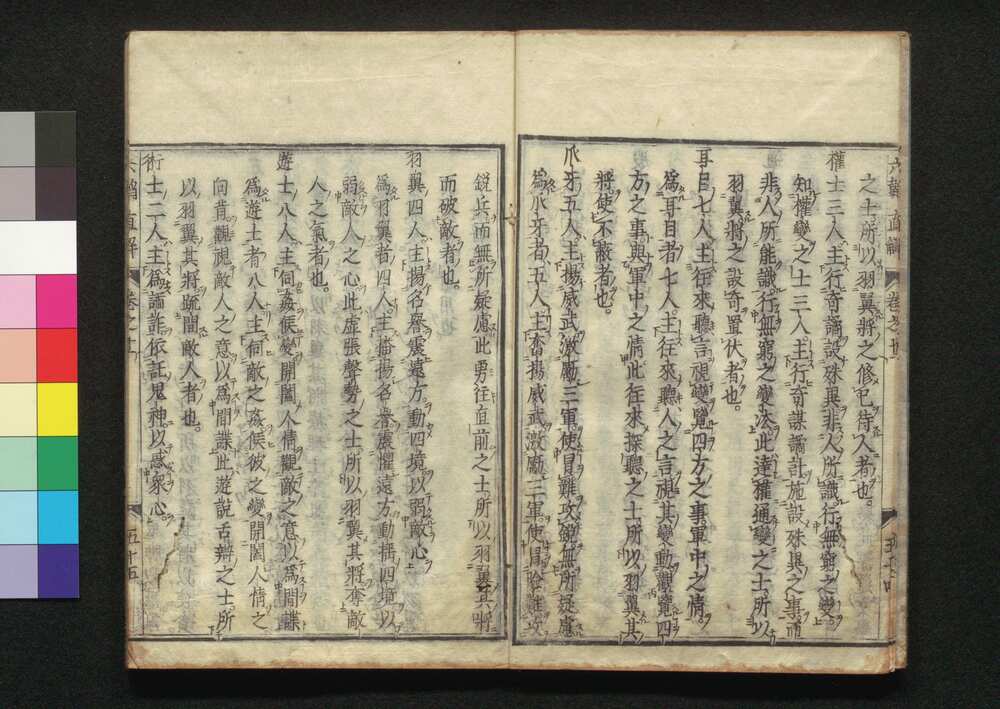 六韜直解 卷之廿
之士所以羽翼將之修己待人者也。
權士三人主行奇譎設殊異非人所識行無窮之變
知權變之士三人主行奇謀譎計施設殊異之事而
非人所能識行無窮之變法此達權通變之士所以
羽翼將之設奇置伏者也。
耳目七人主往來聽言視變覽四方之事軍中之情。
爲耳目者七人主往來聽人之言視其變動觀覽四
方之事與軍中之情此往來探聽之士所以羽翼其
將使不蔽者也。
爪牙五人主揚威武激勵三軍使冒難攻銳無所疑慮
爲爪牙者五人主奮揚威武激勵三軍使冒險難攻
銳兵而無所疑慮此勇往直前之士所以羽翼其將
而破敵者也。
羽翼四人主揚名譽震遠方動四境以弱敵心
爲羽翼者四人主播揚名譽震懼遠方動搖四境以
弱敵人之心此虛張聲勢之士所以羽翼其將奪敵
人之氣者也。
遊士八人主伺姦候變開闔人情觀敵之意以爲間諜
爲遊士者八人主伺敵之姦候彼之變開闔人情之
向背觀視敵人之意以爲間諜此遊說舌辯之士所
以羽翼其將疏間敵人者也。
術士二人主爲譎詐依託鬼神以惑衆心。
六韜直解 卷之 五十五